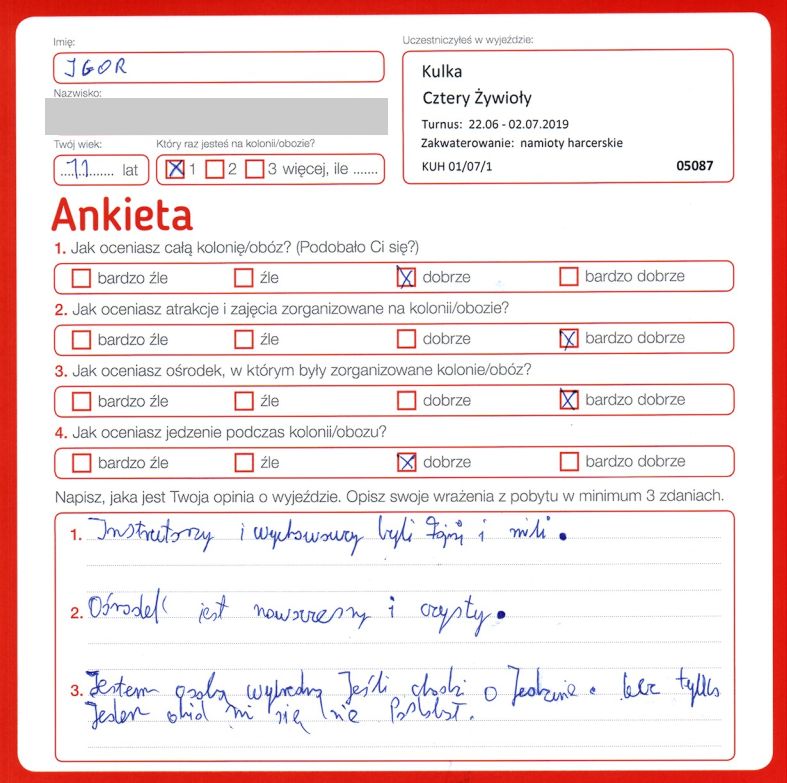 Imię:
IGOR
Nazwisko:
Twój wiek:
11 lat
Który raz jesteś na kolonii/obozie?
1 2 3 więcej, ile .......
Uczestniczyłeś w wyjeździe:
Kulka
Cztery Żywioły
Turnus: 22.06 - 02.07.2019
Zakwaterowanie: namioty harcerskie
KUH 01/07/1 05087
Ankieta
1. Jak oceniasz całą kolonię/obóz? (Podobało Ci się?)
bardzo źle źle dobrze bardzo dobrze
2. Jak oceniasz atrakcje i zajęcia zorganizowane na kolonii/obozie?
bardzo źle źle dobrze bardzo dobrze
3. Jak oceniasz ośrodek, w którym były zorganizowane kolonie/obóz?
bardzo źle źle dobrze bardzo dobrze
4. Jak oceniasz jedzenie podczas kolonii/obozu?
bardzo źle źle dobrze bardzo dobrze
Napisz, jaka jest Twoja opinia o wyjeździe. Opisz swoje wrażenia z pobytu w minimum 3 zdaniach.
1. Instruktorzy i wychowawcy byli fajni i mili.
2. Ośrodek jest nowoczesny i czysty.
3. Jestem osobą wybredną jeśli chodzi o jedzenie. lecz tylko
jeden obiad mi się nie